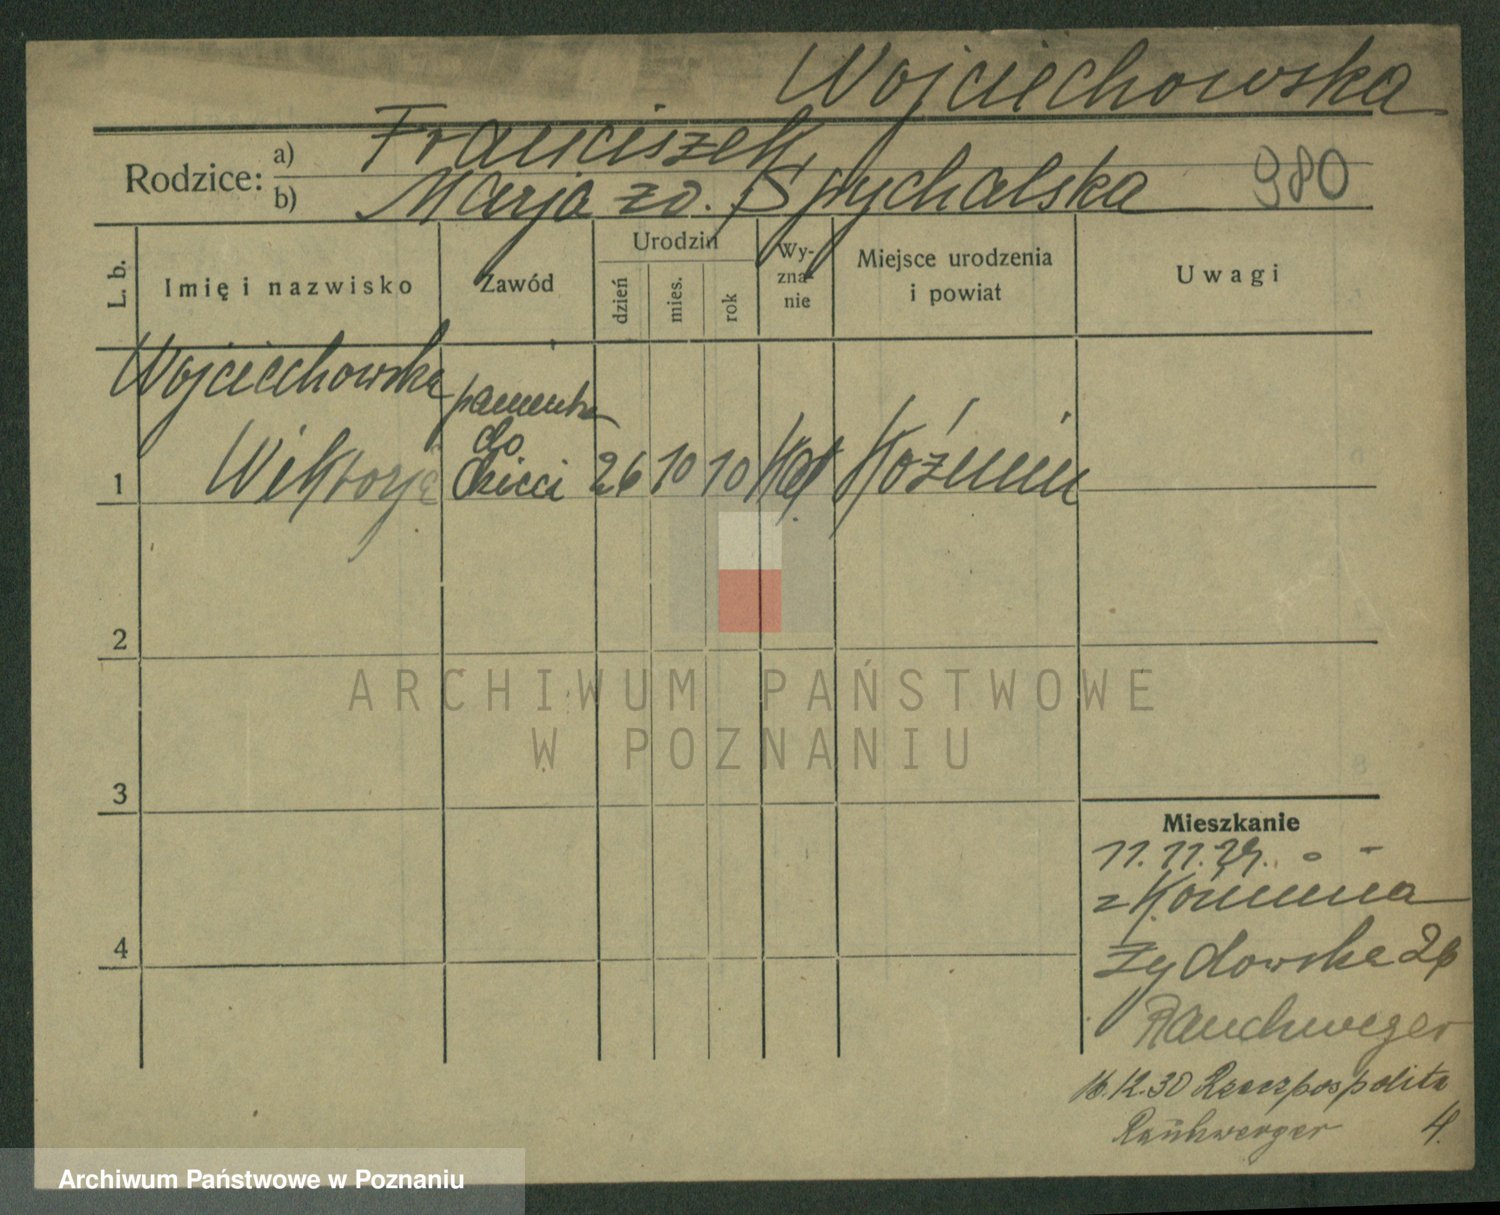 Wojciechowska
Rodzice: a) Franciszek
b) Marja zd. Spychalska 980
L. b. Imię i nazwisko Zawód Urodzin dzień mies. rok Wy-zna-nie Miejsce urodzenia i powiat Uwagi
Wojciechowska panienka
do
1 Wiktorja dzieci 26 10 10 kat Koźmin
2
3
4
Mieszkanie
11.11.29.
z Koźmina
Żydowska 26
Rauchweger
16.12.30 Rzeczpospolita
Rauhwerger 4.
ARCHIWUM PAŃSTWOWE
W POZNANIU
Archiwum Państwowe w Poznaniu